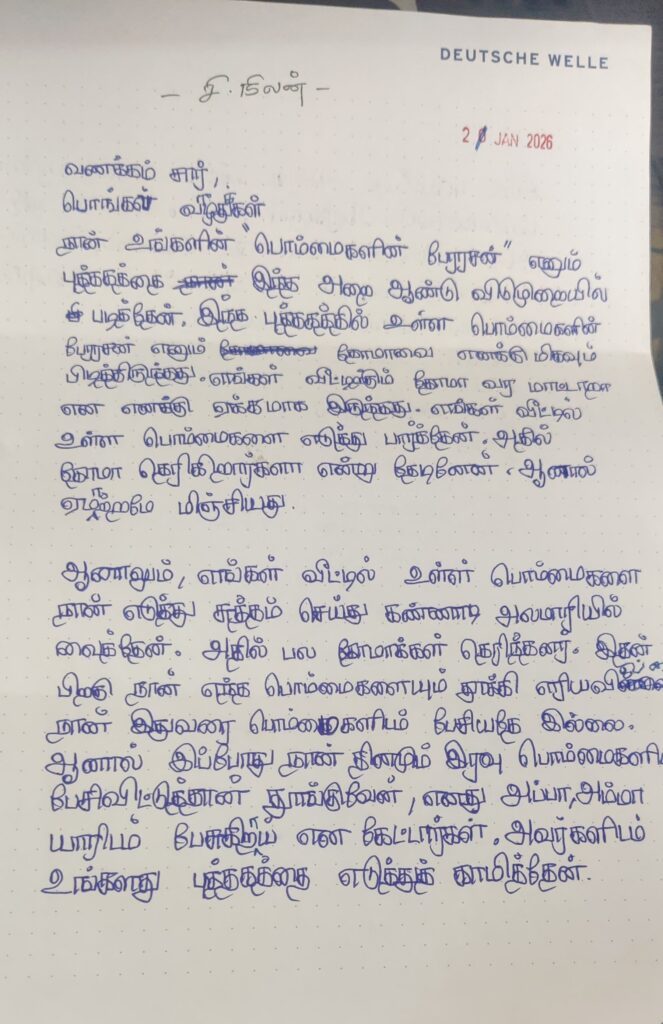 DEUTSCHE WELLE
- சி. நிலன் -
20 JAN 2026
வணக்கம் சார்,
பொங்கல் வாழ்த்துகள்
நான் உங்களின் "பொம்மைகளின் பேரரசன்" எனும்
புத்தகத்தை இந்த அரை ஆண்டு விடுமுறையில்
படித்தேன். இந்த புத்தகத்தில் உள்ள பொம்மைகளின்
பேரரசன் எனும் தோமாவை எனக்கு மிகவும்
பிடித்திருந்தது. எங்கள் வீட்டிலும் தோமா வர மாட்டாரா
என எனக்கு ஏக்கமாக இருந்தது. எங்கள் வீட்டில்
உள்ள பொம்மைகளை எடுத்து பார்த்தேன். அதில்
தோமா தெரிகிறார்களா என்று தேடினேன். ஆனால்
ஏமாற்றமே மிஞ்சியது.
ஆனாலும், எங்கள் வீட்டில் உள்ள பொம்மைகளை
நான் எடுத்து சுத்தம் செய்து கண்ணாடி அலமாரியில்
வைத்தேன். அதில் பல தோமாக்கள் தெரிந்தனர். இதன்
பிறகு நான் எந்த பொம்மைகளையும் தூக்கி எரியவில்லை
நான் இதுவரை பொம்மைகளிடம் பேசியதே இல்லை.
ஆனால் இப்போது நான் தினமும் இரவு பொம்மைகளி
பேசிவிட்டுத்தான் தூங்குவேன், எனது அப்பா, அம்மா
யாரிடம் பேசுகிறாய் என கேட்டார்கள். அவர்களிடம்
உங்களது புத்தகத்தை எடுத்துக் காமித்தேன்.